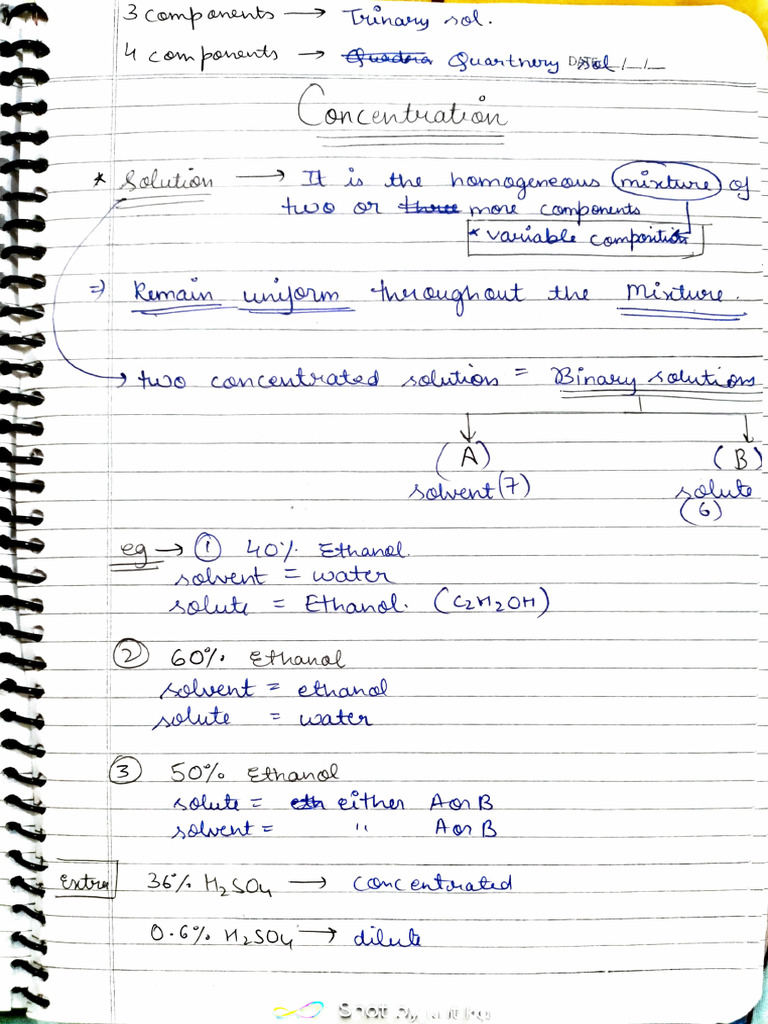 3 components → Trinary sol.
4 components → Quartnery sol
DATE __/__/__
Concentration
* Solution → It is the homogeneous mixture of
two or three more components
* variable composition
⇒ Remain uniform throughout the Mixture.
→ two concentrated solution = Binary solutions
(A) (B)
solvent (7) solute
(6)
eg → ① 40% Ethanol.
solvent = water
solute = Ethanol. (C2H2OH)
② 60% Ethanol
solvent = ethanol
solute = water
③ 50% Ethanol
solute = eth either A or B
solvent = " A or B
Extra 36% H2SO4 → concentrated
0.6% H2SO4 → dilute
Shot by